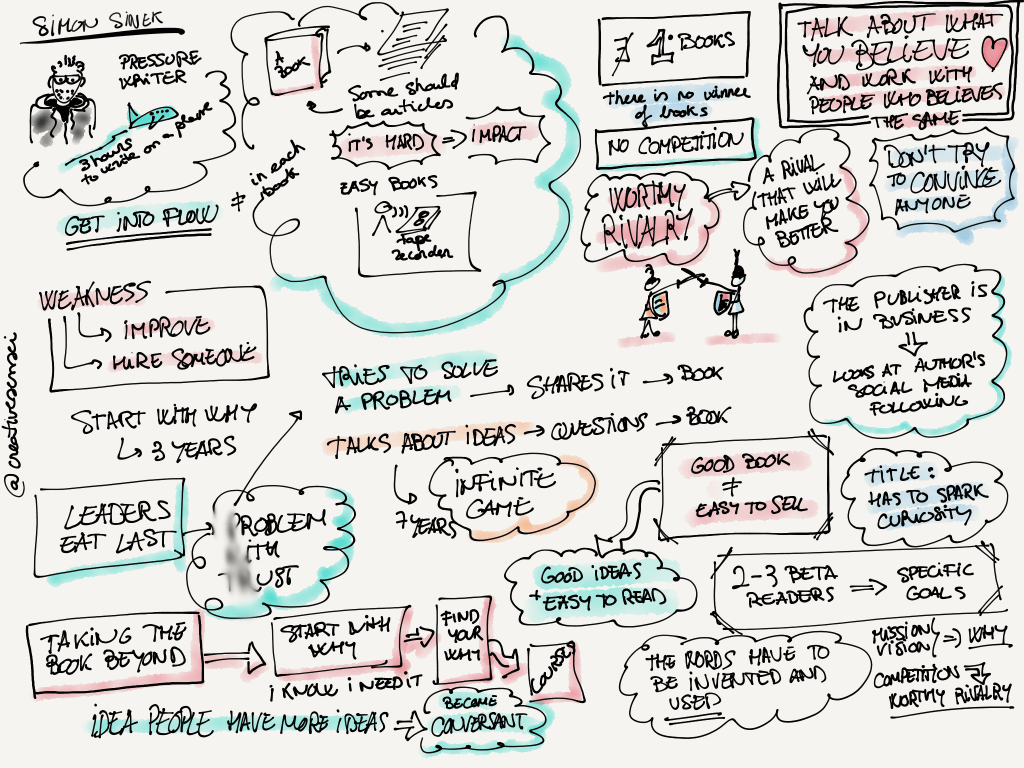 SIMON SINEK
PRESSURE
WRITER
3 hours
to write on a plane
GET INTO FLOW
≠
in each
book
A
BOOK
Some should
be articles
IT'S HARD => IMPACT
EASY BOOKS
tape
recorder
1. BOOKS
there is no winner
of books
NO COMPETITION
WORTHY
RIVALRY
A RIVAL
THAT WILL
MAKE YOU
BETTER
TALK ABOUT WHAT
YOU BELIEVE
AND WORK WITH
PEOPLE WHO BELIEVES
THE SAME
DON'T TRY
TO CONVINCE
ANYONE
THE PUBLISHER IS
IN BUSINESS
LOOKS AT AUTHOR'S
SOCIAL MEDIA
FOLLOWING
WEAKNESS
IMPROVE
HIRE SOMEONE
START WITH WHY
3 YEARS
LEADERS
EAT LAST
PROBLEM
WITH
TRUST
TRIES TO SOLVE
A PROBLEM → SHARES IT → BOOK
TALKS ABOUT IDEAS → QUESTIONS → BOOK
7 YEARS
INFINITE
GAME
GOOD BOOK
≠
EASY TO SELL
TITLE:
HAS TO SPARK
CURIOSITY
GOOD IDEAS
+ EASY TO READ
2-3 BETA
READERS => SPECIFIC
GOALS
TAKING THE
BOOK BEYOND
START WITH
WHY
FIND
YOUR
WHY
COURSE
I KNOW I NEED IT
IDEA PEOPLE HAVE MORE IDEAS
BECOME
CONVERSANT
THE WORDS HAVE TO
BE INVENTED AND
USED
MISSION/
VISION => WHY
COMPETITION =>
WORTHY RIVALRY
@creativesensei